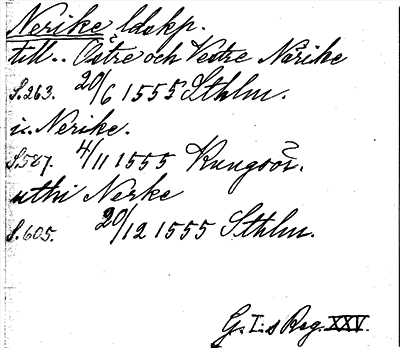 Nerike ldskp.
till.. Östre och Vestre Närike
S.263. 20/6 1555 Sthlm.
i. Nerike.
S.587. 4/11 1555 Kungsör.
uthi Nerke
S.605. 20/12 1555 Sthlm.
G. I:s Reg. XXV.